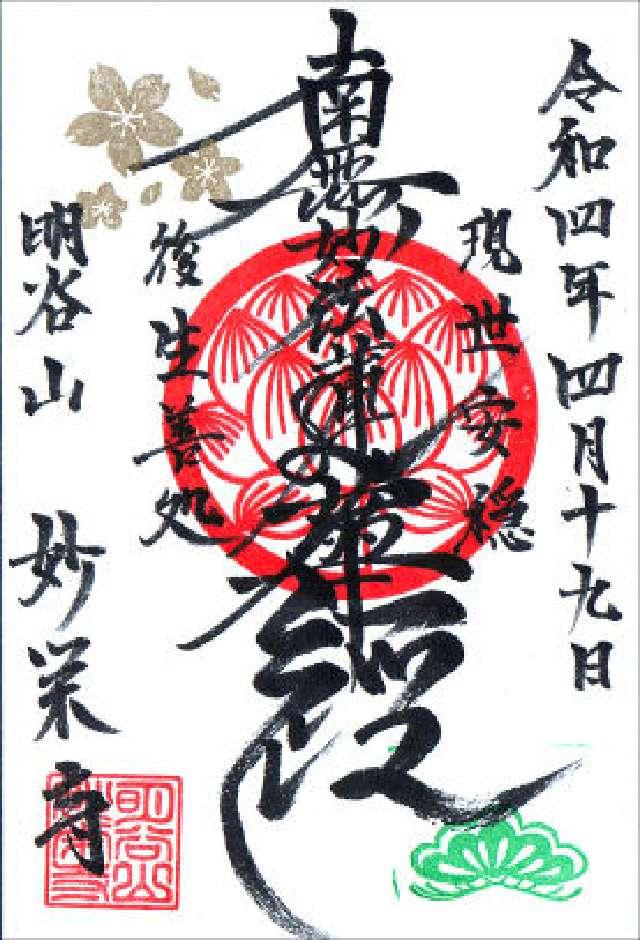 令和四年四月十九日
現世安穏
南無妙法蓮華経
後生善処
明谷山 妙栄寺